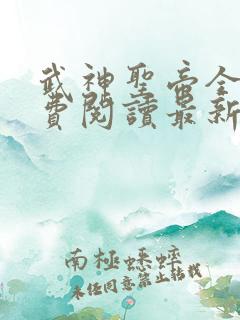 武神聖帝全
費閱讀最新
南極蟋蟀
未經同意禁止轉載